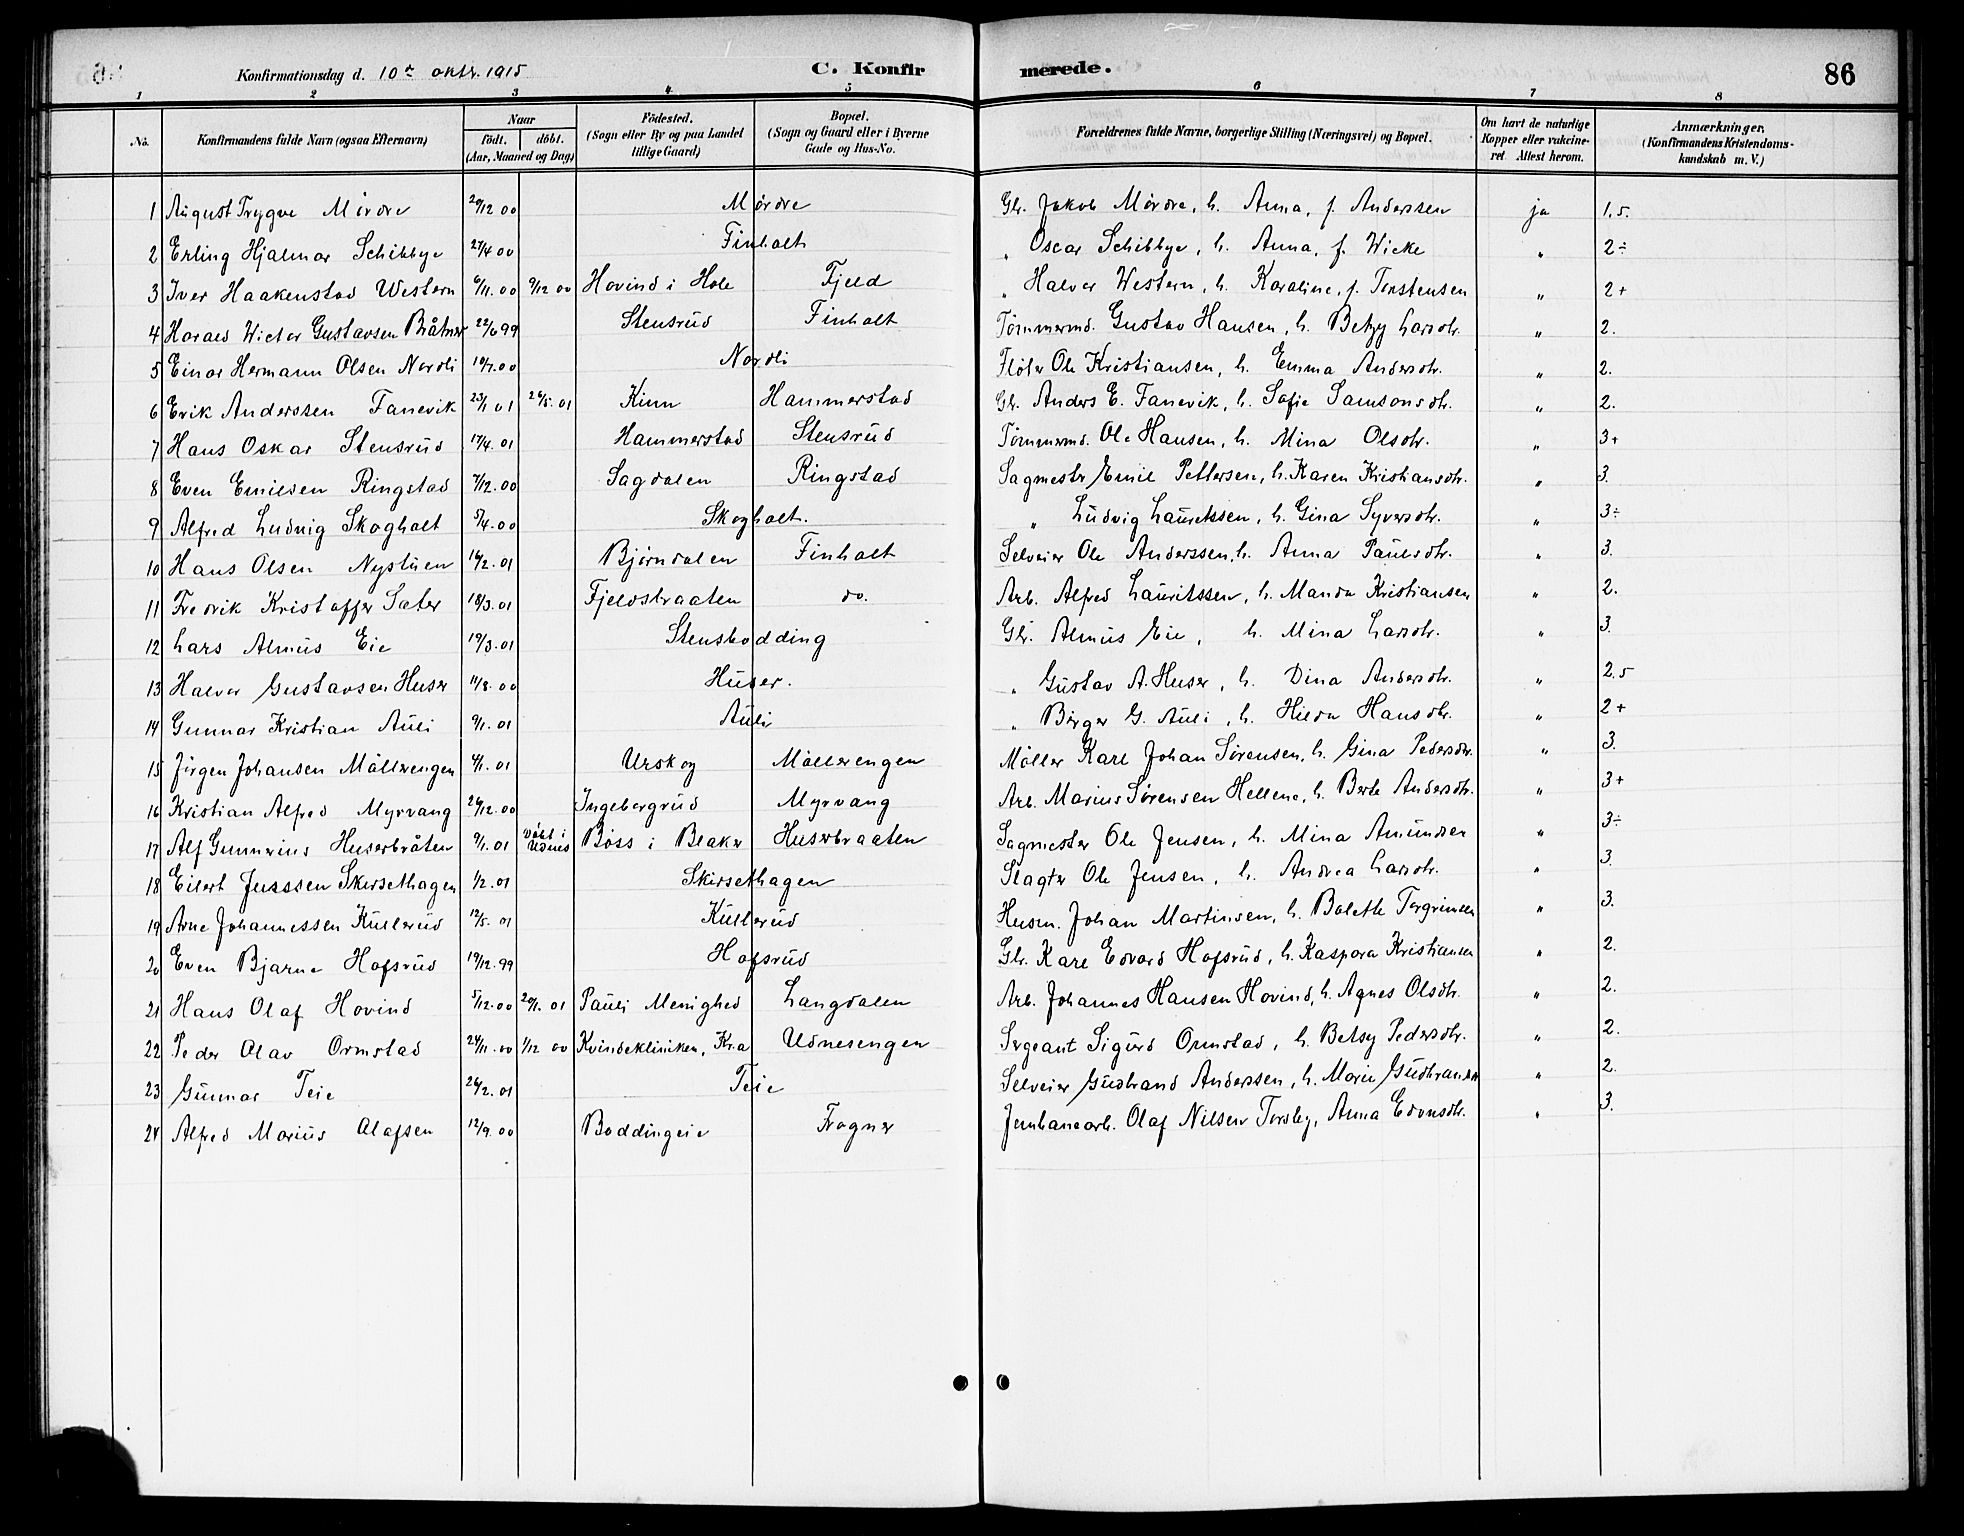 Konfirmationsdag d. 10de oktbr. 1915 C. Konfirmerede. 86
1 2 3 4 5 6 7 8
No. Konfirmandens fulde Navn (ogsaa Efternavn) Naar födt. döbt. (Aar, Maaned og Dag) Födested. (Sogn eller By og paa Landet tillige Gaard) Bopæl. (Sogn og Gaard eller i Byerne Gade og Hus-No. Forældrenes fulde Navne, borgerlige Stilling (Næringsvei) og Bopæl. Om havt de naturlige Kopper eller vakcineret Attest herom. Anmærkninger. (Konfirmandens Kristendomskundskab m. V.)
1 August Trygve Mørdre 29/12 00 Mørdre Gbr. Jakob Mørdre, h. Anna, f. Anderssen ja 1,5.
2 Erling Hjalmar Schibbye 27/4 00 Finholt " Oscar Schibbye, h. Anna, f. Wicke " 2÷
3 Iver Haakenstad Western 6/11. 00 9/12 00 Hovind i Hole Fjeld " Halvor Western, h. Karoline, f. Torstensen " 2+
4 Harald Victor Gustavsen Båtner 22/6 99 Stensrud Finholt Tømmermd. Gustav Hansen, h. Betzy Larsdtr. " 2.
5 Einar Hermann Olsen Nordli 10/7. 00 Nordli Fløter Ole Kristiansen, h. Emma Andersdtr. " 2.
6 Erik Anderssen Fanevik 23/1 01 26/5. 01 Kinn Hammerstad Gbr. Anders E. Fanevik, h. Sofie Samsonsdtr. " 2.
7 Hans Oskar Stensrud 17/4. 01 Hammerstad Stensrud Tømmermd. Ole Hansen, h. Mina Olsdtr. " 3+
8 Even Emilsen Ringstad 7/12. 00 Sagdalen Ringstad Sagmestr Emil Pettersen, h. Karen Kristiansdtr. " 3.
9 Alfred Ludvig Skogholt 5/4. 00 Skogholt. " Ludvig Lauritssen, h. Gina Syversdtr. " 3÷
10 Hans Olsen Nystuen 14/2. 01 Bjørndalen Finholt Selveier Ole Anderssen, h. Anna Paulsdtr. " 3.
11 Fredrik Kristoffer Sæter 18/3. 01 Fjeldstraaten do. Arb. Alfred Lauritssen, h. Manda Kristiansen " 2.
12 Lars Almus Eie 19/3. 01 Stensbodding Gbr. Almus Eie, h. Mina Larsdtr. " 3.
13 Halvor Gustavsen Huser 11/8. 00 Huser. " Gustav A. Huser, h. Dina Andersdtr. " 2,5
14 Gunnar Kristian Auli 9/1. 01 Auli " Birger G. Auli, h. Hilda Hansdtr. " 2+
15 Jörgen Johansen Möllerengen 4/1. 01 Urskog Möllerengen Möller Karl Johan Sørensen, h. Gina Pedersdtr. " 3.
16 Kristian Alfred Myrvang 26/12. 00 Ingebergrud Myrvang Arb. Marius Sørensen Hellene, h. Berte Andersdtr. " 3+
17 Alf Gunnerius Huserbråten 9/1. 01 Döbt i Udnes Böss i Blaker Huserbraaten Sagmester Ole Jensen, h. Mina Amundsen " 3÷
18 Eilert Jensssen Skirsethagen 1/2. 01 Skirsethagen Slagter Ole Jensen, h. Andrea Larsdtr. " 3.
19 Arne Johannessen Kullerud 12/5. 01 Kullerud Husm. Johan Martinsen, h. Bolette Torgrimsen " 3.
20 Even Bjarne Hofsrud 19/12. 99 Hofsrud Gbr. Karl Edvard Hofsrud, h. Kaspara Kristiansen " 2.
21 Hans Olaf Hovind 5/12. 00 20/1. 01 Pauli Menighed Langdalen Arb. Johannes Hansen Hovind, h. Agnes Olsdtr. " 2.
22 Peder Olav Ormstad 24/11. 00 1/12 00 Kvindekliniken, Kra Udnesengen Sergeant Sigurd Ormstad, h. Betsy Pedersdtr. " 2.
23 Gunnar Teie 26/2. 01 Teie Selveier Gudbrand Anderssen, h. Marie Gudbrandsen " 2.
24 Alfred Marius Olafsen 12/9. 00 Boddingeie Frogner Jernbanearb. Olaf Nilsen Torsby, Anna Edvinsdtr. " 3.